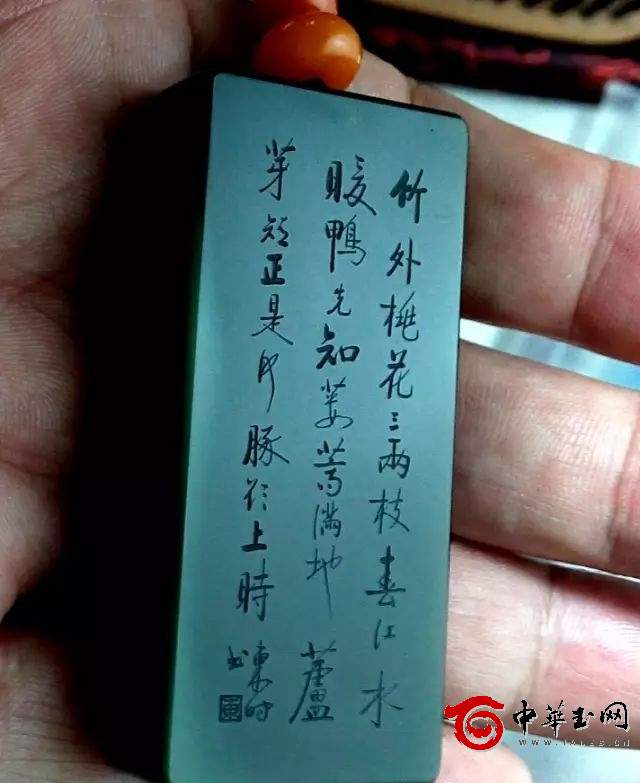 竹外桃花三兩枝春江水
暖鴨先知蔞蒿滿地蘆
芽短正是河豚欲上時
中華玉网